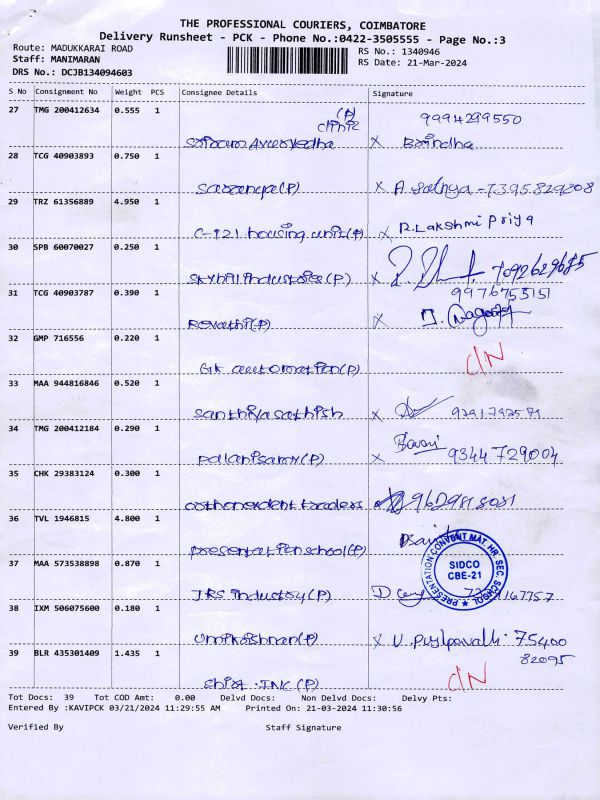 THE PROFESSIONAL COURIERS, COIMBATORE
Delivery Runsheet - PCK - Phone No.:0422-3505555 - Page No.:3
Route: MADUKKARAI ROAD
Staff: MANIMARAN
DRS No.: DCJB134094603
RS No.: 1340946
RS Date: 21-Mar-2024
S No Consignment No Weight PCS Consignee Details Signature
27 TMG 200412634 0.555 1 (P) 9994299550
clinic
Ayurvedha x Brindha
28 TCG 40903893 0.750 1
(P) x A Sathya - 7395829808
29 TRZ 61356889 4.950 1
C-121 housing unit(P) x R.Lakshmi Priya
30 SPB 60070027 0.250 1
industries (P) x 7092629685
31 TCG 40903787 0.390 1 9976755151
Revathi(P) x
32 GMP 716556 0.220 1 C/N
GK automation(P)
33 MAA 944816846 0.520 1
Santhiya sathish x
34 TMG 200412184 0.290 1
Palanisamy(P) x 9344729004
35 CHK 29383124 0.300 1
traders
36 TVL 1946815 4.800 1
presentation school(P)
PRESENTATION CONVENT MAT. HR. SEC. SCHOOL
SIDCO
CBE-21
37 MAA 573538898 0.870 1
JRS industry(P)
38 IXM 506075600 0.180 1
Unnikrishnan(P) x V. Pushpavalli 75400
82095
39 BLR 435301409 1.435 1 C/N
INC(P)
Tot Docs: 39 Tot COD Amt: 0.00 Delvd Docs: Non Delvd Docs: Delvy Pts:
Entered By :KAVIPCK 03/21/2024 11:29:55 AM Printed On: 21-03-2024 11:30:56
Verified By Staff Signature